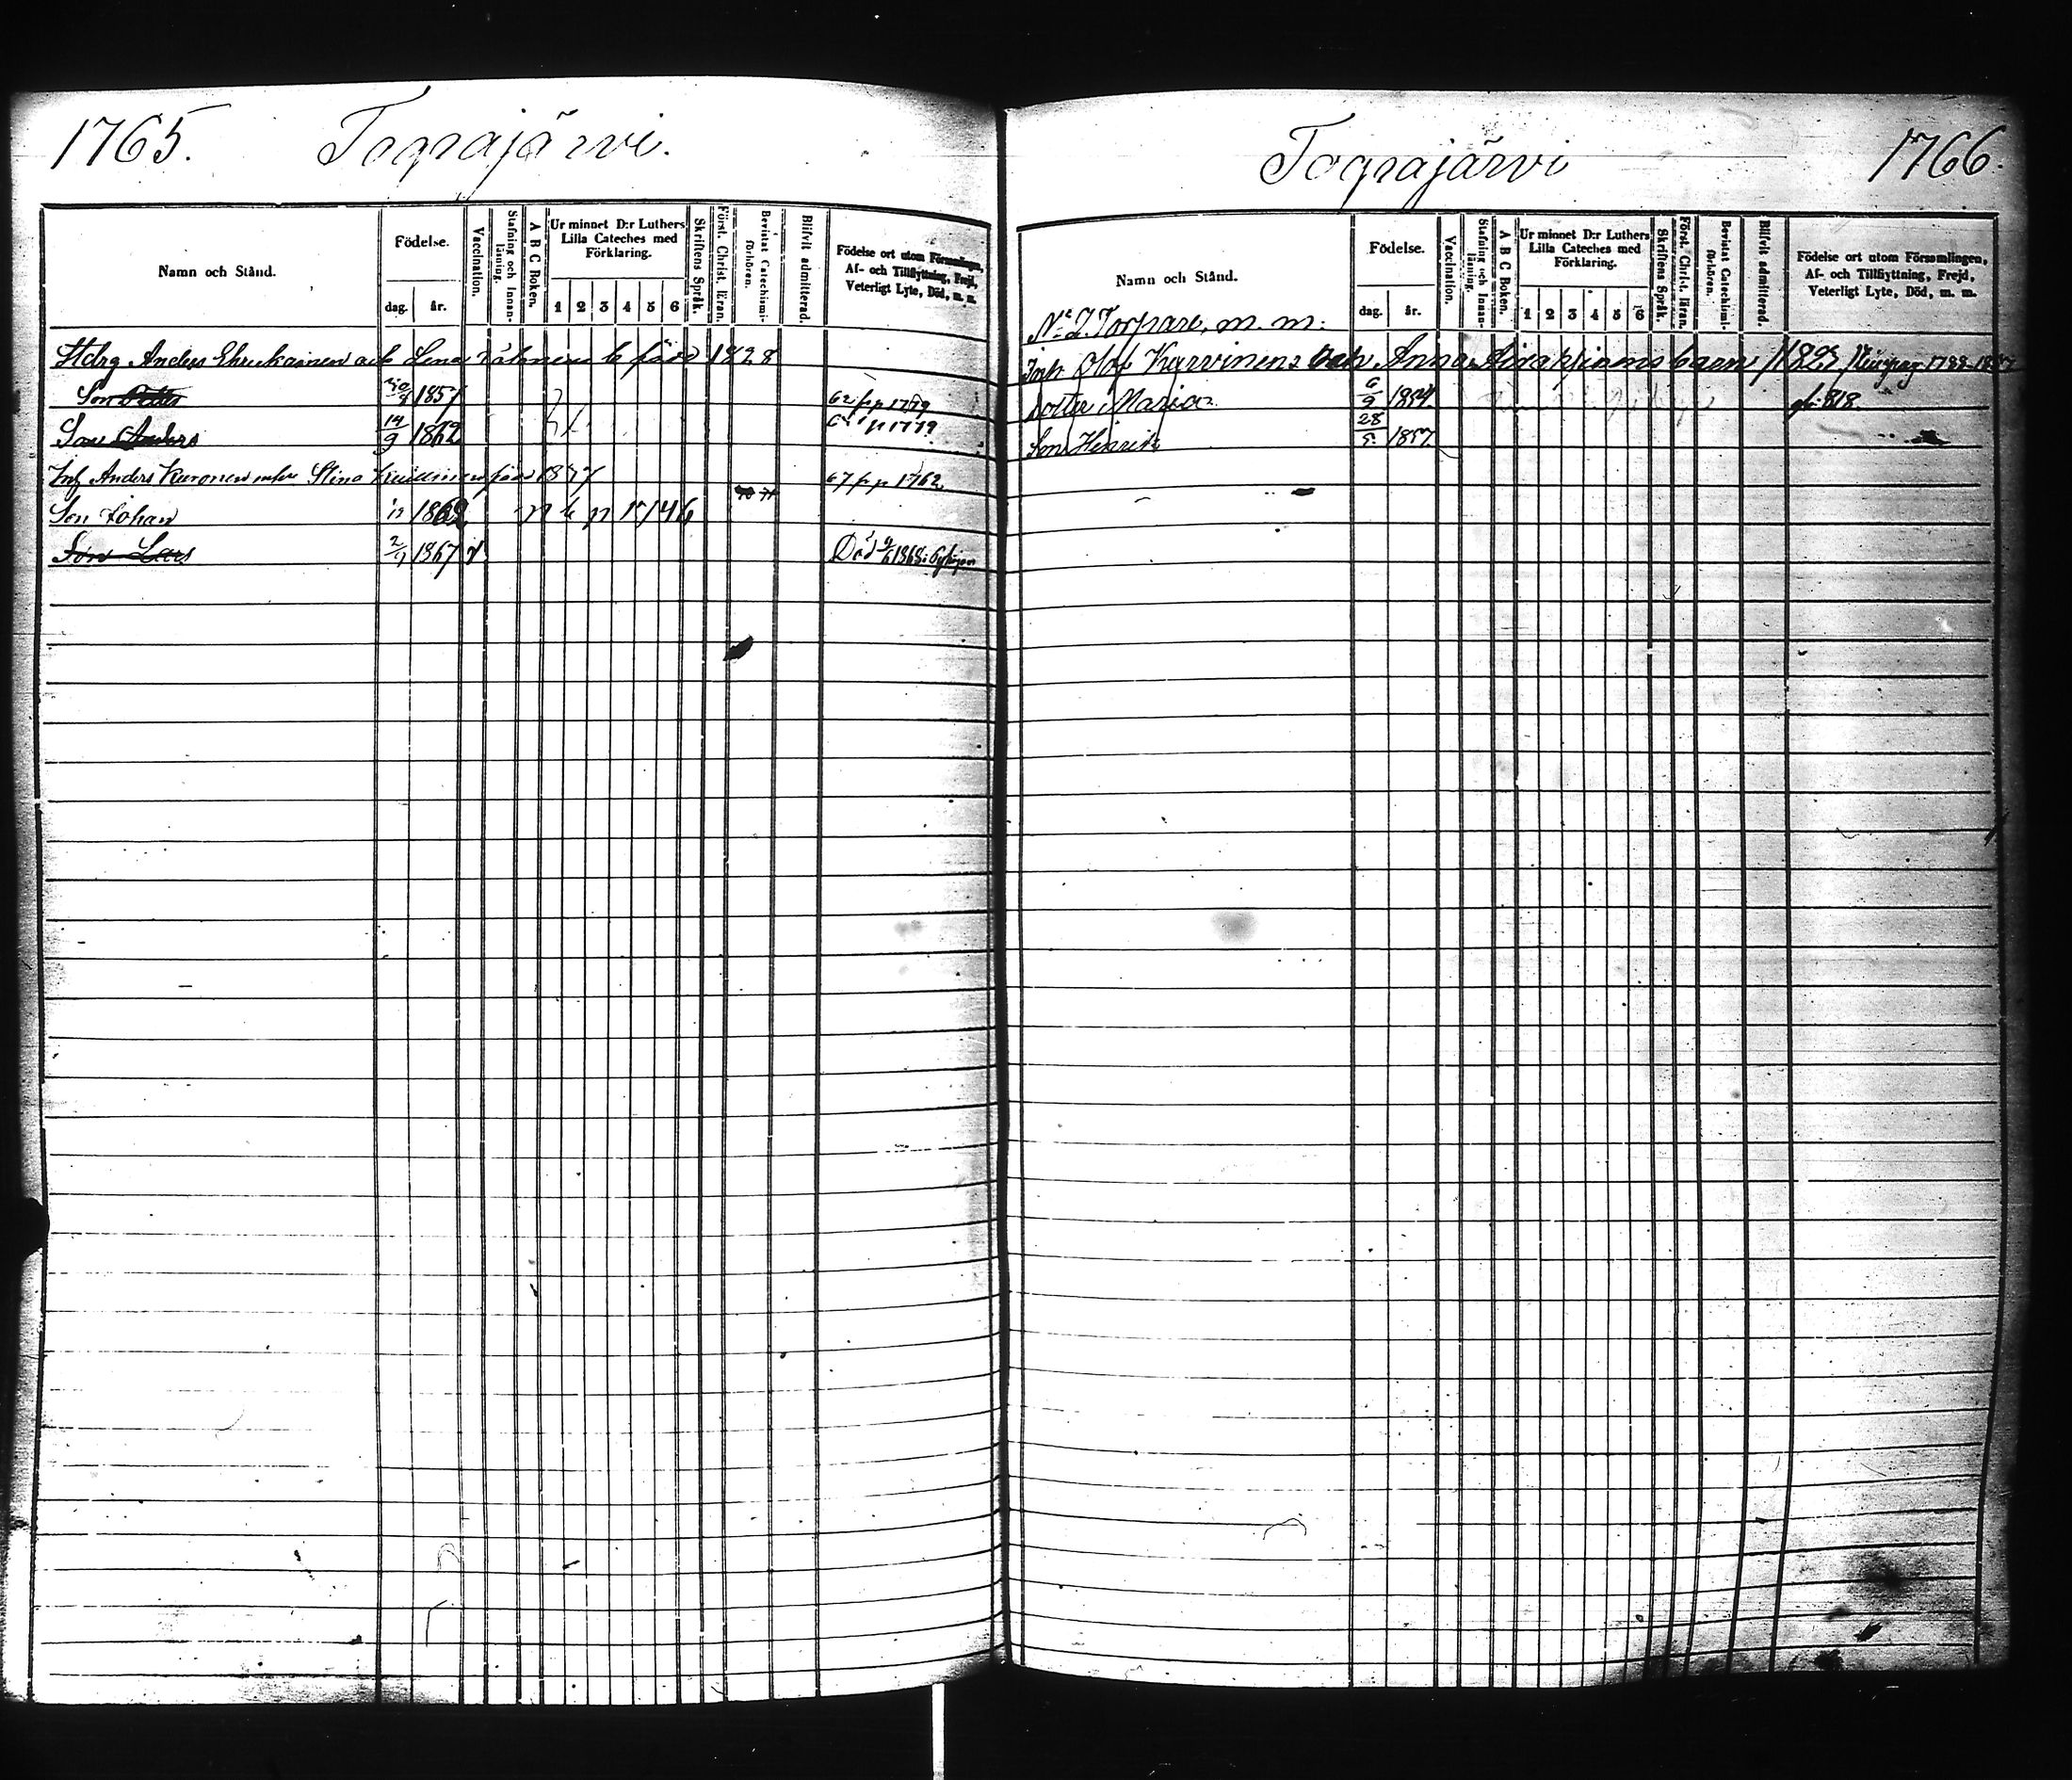 1765. Tograjärvi.
Namn och Stånd.
Födelse.
dag. år.
Vaccination.
Stafning och Innan-läsning.
A B C Boken.
Ur minnet D:r Luthers
Lilla Cateches med
Förklaring.
1 2 3 4 5 6
Skriftens Språk.
Först. Christ. läran.
Bevistat Catechismi-förhören.
Blifvit admitterad.
Födelse ort utom Församlingen,
Af- och Tillflyttning, Frejd,
Veterligt Lyte, Död, m. m.
Anders Lena född 1828
Son 1857 62 p p 1779
Son Anders 14/9 1862 p 1779
Anders Kuronen Stina 67 p p 1762
Son Johan 1862
Son Lars 2/9 1867 Död 1868
Tograjärvi 1766.
Namn och Stånd.
Födelse.
dag. år.
Vaccination.
Stafning och Innan-läsning.
A B C Boken.
Ur minnet D:r Luthers
Lilla Cateches med
Förklaring.
1 2 3 4 5 6
Skriftens Språk.
Först. Christ. läran.
Bevistat Catechismi-förhören.
Blifvit admitterad.
Födelse ort utom Församlingen,
Af- och Tillflyttning, Frejd,
Veterligt Lyte, Död, m. m.
Torpare, m. m.
Olof Karvinens och Anna barn
Dotter Maria 6/9 1854 818
Son Henrik 28/5 1857